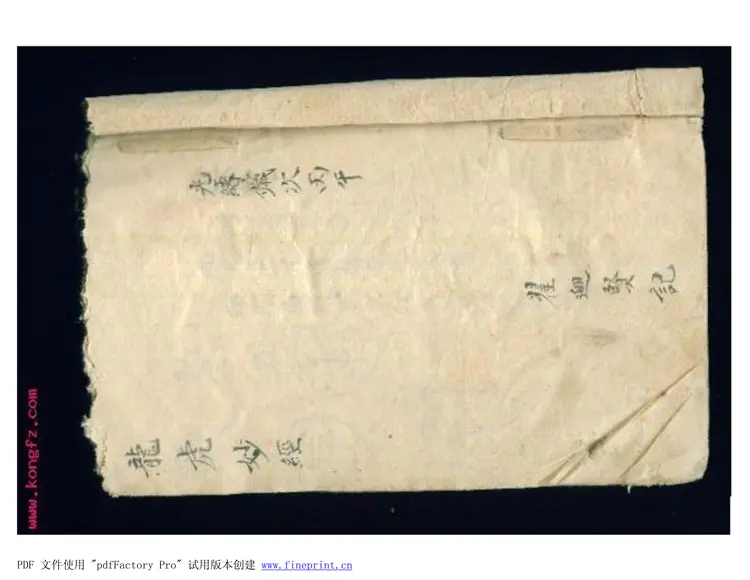 光緒歲次丙午
瞿迴賢記
龍虎妙經
www.kongfz.com
PDF 文件使用 "pdfFactory Pro" 试用版本创建 www.fineprint.cn